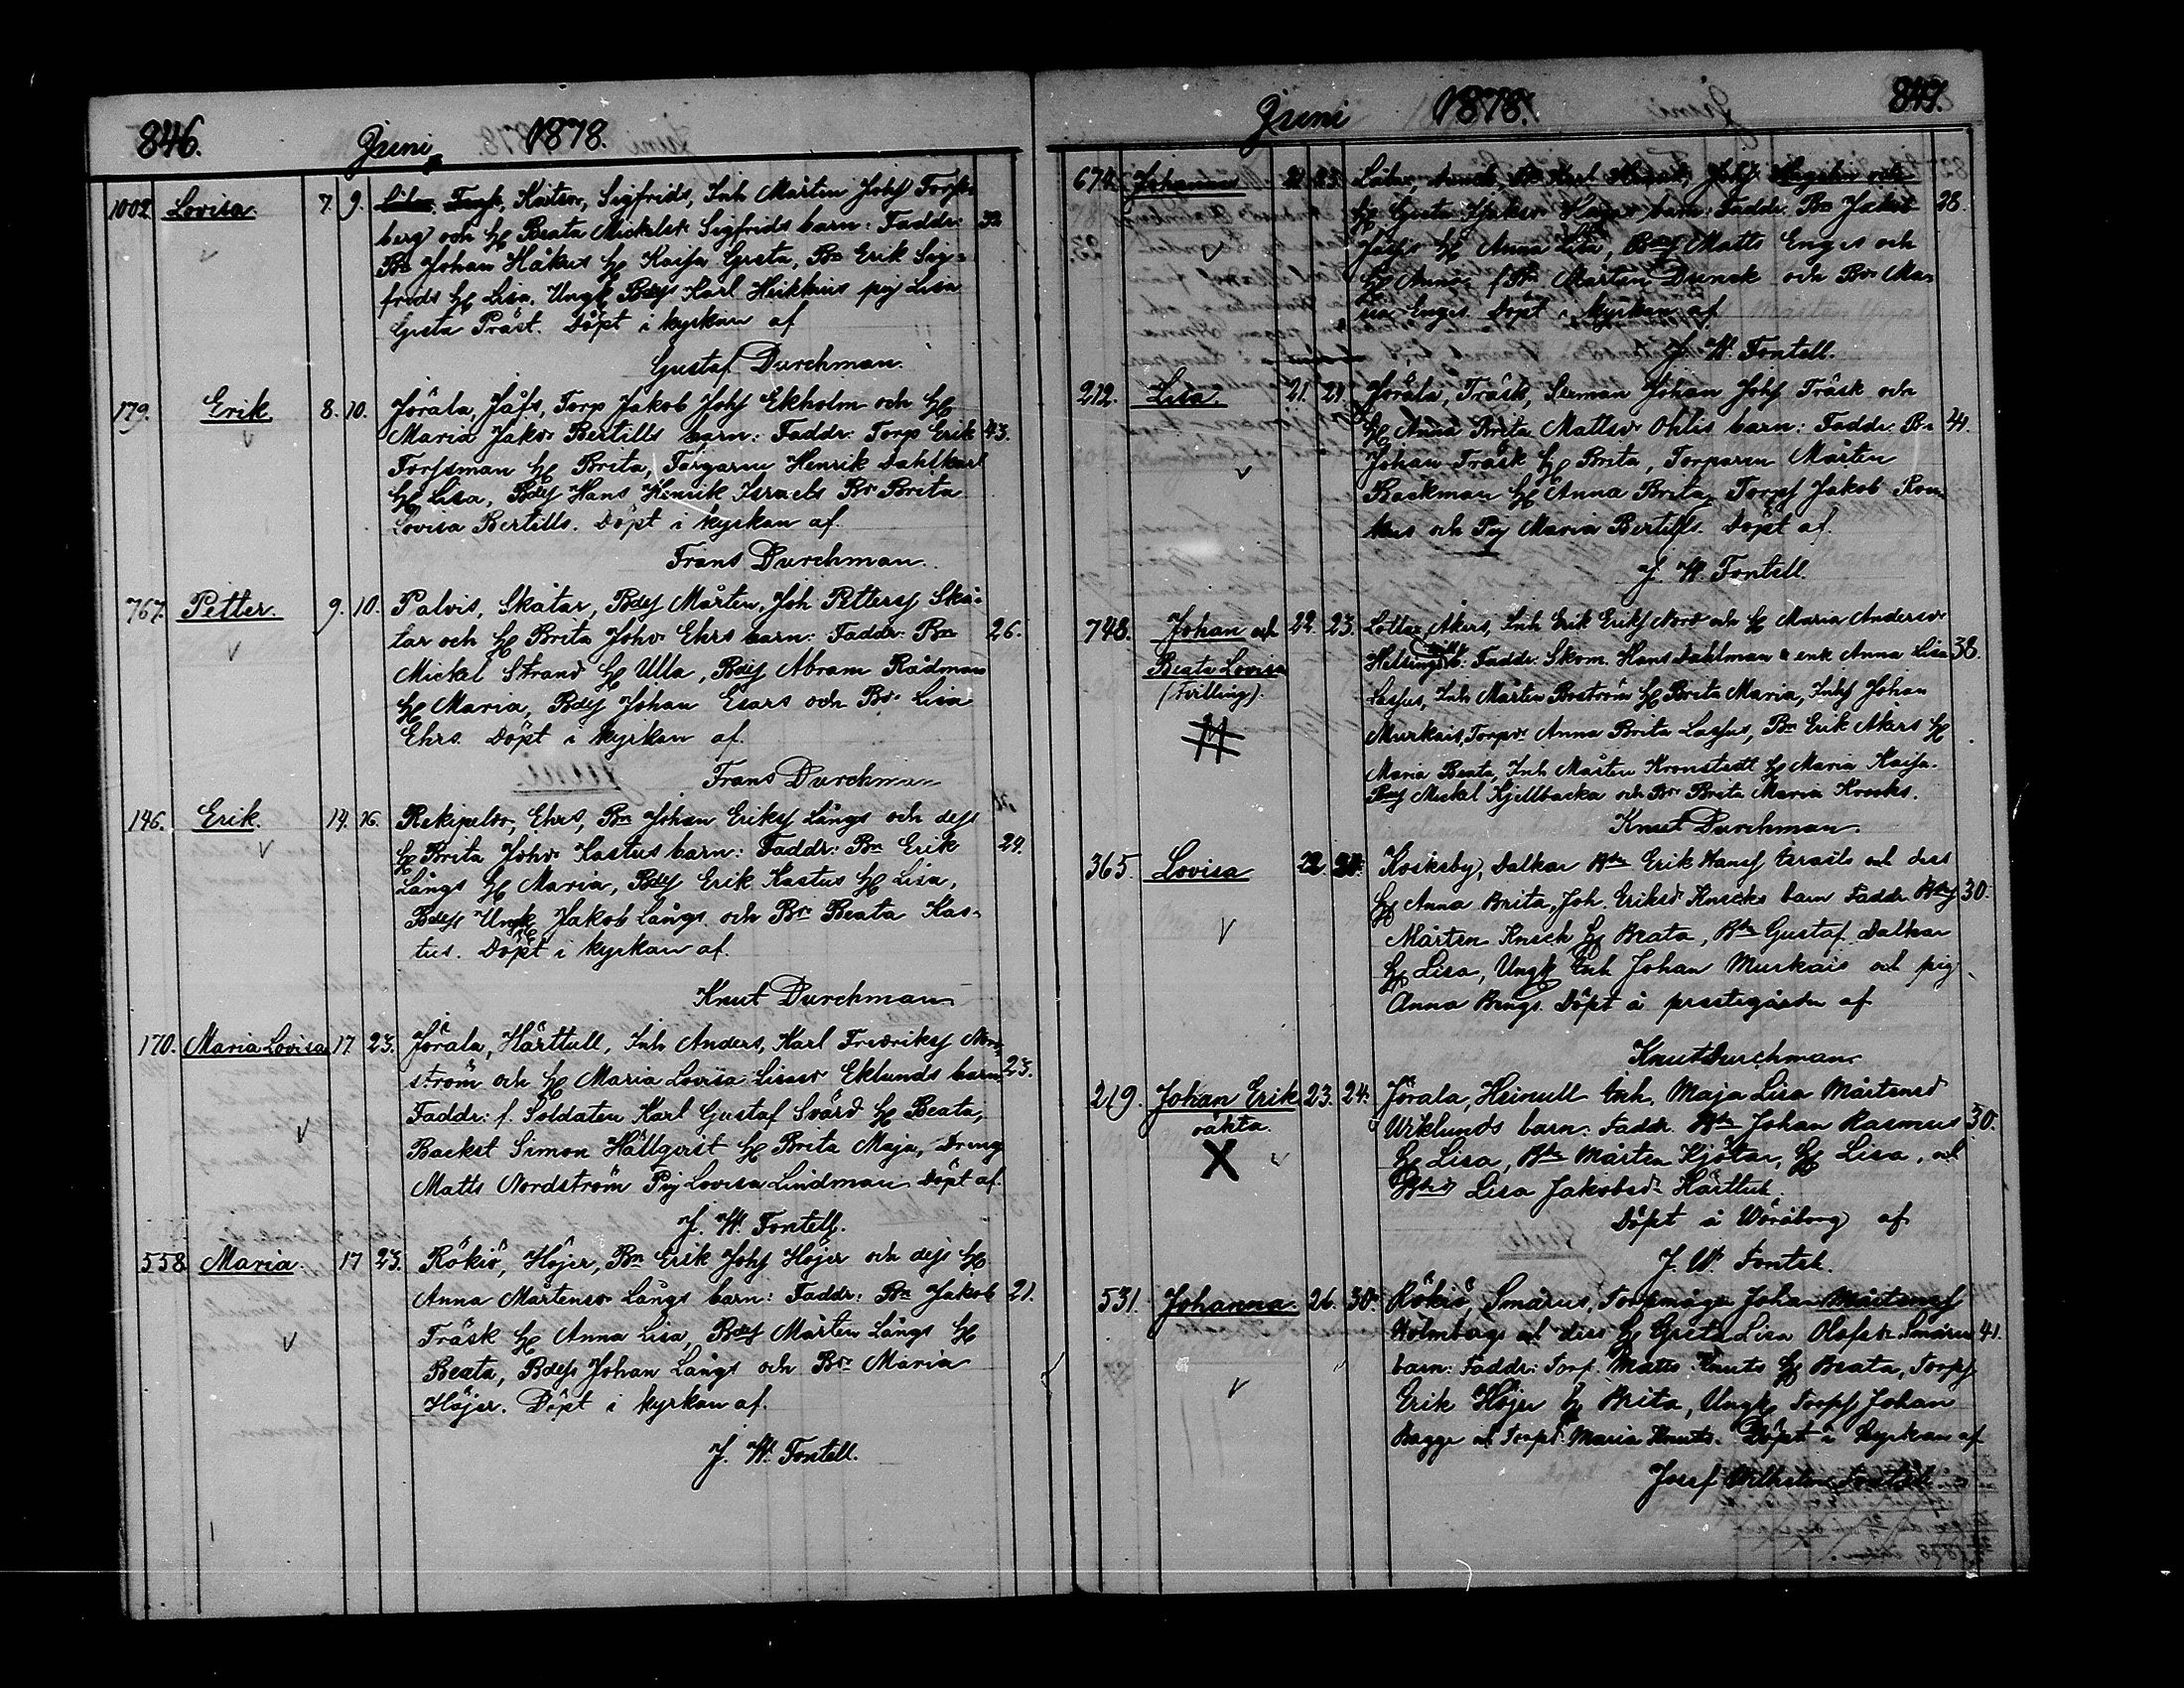 846. Juni 1878.
1002 Lovisa. 7. 9. Kaitsor, Sigfrids, Inh Mårten Johs Forss-
berg och H Beata Mickelsd. Sigfrids barn: Faddr: 32.
Bn Johan Håkus H Kaisa Greta, Bn Erik Sig-
frids H Lisa. Ungk Bdes Karl Heikkius pig Lisa
Greta Präst. Döpt i kyrkan af
Gustaf Durchman.
179. Erik 8. 10. Jörala, Jåfs, Torp Jakob Johs Ekholm och H
Maria Jakdr Bertills barn: Faddr: Torp Erik 43.
Forssman H Brita, Färgaren Henrik Dahlkarl
H Lisa, Bdes Hans Henrik Israels Bdr Brita
Lovisa Bertills. Döpt i kyrkan af.
Frans Durchman.
767. Petter. 9. 10. Palvis, Skatar, Bdes Mårten, Joh Petters Ska-
tar och H Brita Johdr Ehrs barn: Faddr: Bn 26.
Mickel Strand H Ulla, Bdes Abram Rådman
H Maria, Bdes Johan Esars och Bdr Lisa
Ehrs. Döpt i kyrkan af.
Frans Durchman
146. Erik. 14. 16. Rekipeldo, Ehrs, Bn Johan Eriks Långs och dess
H Brita Johdr Kastus barn: Faddr: Bn Erik 29.
Långs H Maria, Bdes Erik Kastus H Lisa,
Bdess Ungk Jakob Långs och Bdr Beata Kas-
tus. Döpt i kyrkan af.
Knut Durchman
170. Maria Lovisa 17 23. Jörala, Härttull, Inh Anders, Karl Fredriks Nord-
ström och H Maria Lovisa Eklunds barn 23.
Faddr: f. Soldaten Karl Gustaf Svärd H Beata,
Backst Simon Hällqvist H Brita Maja, Dreng
Matts Nordström Pig Lovisa Lindman Döpt af.
J. W. Fontell.
558. Maria. 17 23. Rökiö, Höjer, Bn Erik Johs Höjer och dess H
Anna Mårtensdr Långs barn: Faddr: Bn Jakob 21.
Träsk H Anna Lisa, Bdes Mårten Långs H
Beata, Bdess Johan Långs och Bdr Maria
Höjer. Döpt i kyrkan af.
J. W. Fontell.
Juni 1878. 847.
674. Johannes 23.
H Greta barn: Faddr. Bn Jakob 28.
H Anna Lisa, Bdes Matts Enges och
H Anna, Mårten Dunck och Bdr Ma-
ria Enges. Döpt i kyrkan af
J. W. Fontell.
212. Lisa. 21. 24. Jörala, Träsk, Seeman Johan Johs Träsk och
H Anna Brita Mattsdr Ohlis barn: Faddr. Bn 44.
Johan Träsk H Brita, Torparen Mårten
Backman H Anna Brita, Torps Jakob
och Pig Maria Bertills. Döpt af.
J. W. Fontell.
748. Johan och 22. 23. Lotlax, Åkers, Inh Erik Eriks Nord och H Maria Andersdr
Beata Lovisa Helsing b: Faddr: Skom. Hans Dahlman & enk Anna Lisa 38.
(tvilling). Lassus, Inh Mårten Boström H Brita Maria, Inhs Johan
Murkais, Torpdr Anna Brita Lassus, Bn Erik Åkers H
Maria Beata, Inh Mårten Kronstedt H Maria Kaisa.
Bdes Mickel Kjellbacka och Bdr Brita Maria Kneeks.
Knut Durchman.
365. Lovisa 22 24. Koskeby, Dalkar Bde Erik Hans Israels och dess
H Anna Brita, Joh. Eriksd Knecks barn Faddr. Bdes 30.
Mårten Kneck H Beata, Bde Gustaf Dalkar
H Lisa, Ungk Inh Johan Murkais och pig
Anna Bengs. Döpt å prestegården af
Knut Durchman
219. Johan Erik 23. 24. Jörala, Heinull Inh. Maja Lisa Mårtensd
oäkta. Wiklunds barn: Faddr. Bde Johan Rasmus 30.
X H Lisa, Bde Mårten Kjötar, H Lisa, och
Lisa Jakobsdr Härttull.
Döpt å Wöråborg af
J. W. Fontell.
531. Johanna. 26. 30. Rökiö, Smarus, Torpmågen Johan Mårtens
Holmbergs och dess H Greta Lisa Olofsdr Smarus 41.
barn: Faddr: Torp. Matts Knuts H Beata, Torps
Erik Höjer H Brita, Ungk Torps Johan
Bagge och Torpd. Maria Knuts. Döpt i kyrkan af
Josef Wilhelm Fontell